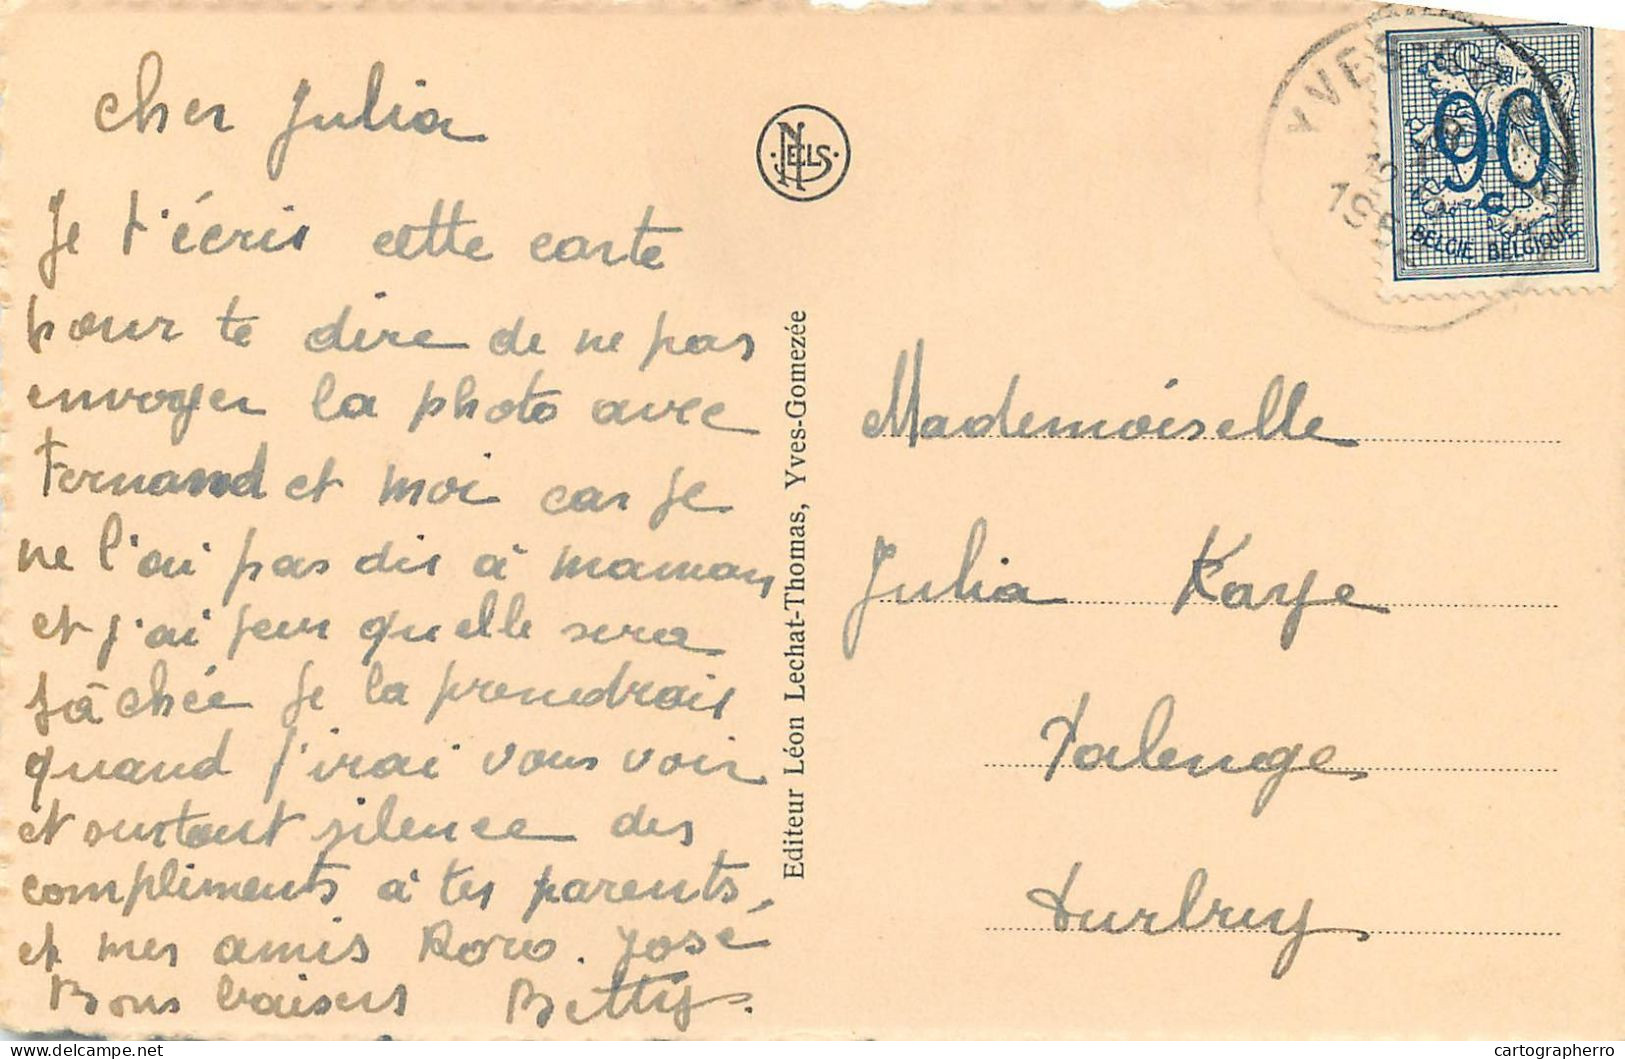 cher Julia
Je t'écris cette carte
pour te dire de ne pas
envoyer la photo avec
Fernand et moi car je
ne l'ai pas dis à maman
et j'ai peur quelle sera
fâchée je la prendrais
quand j'irai vous voir
et surtout silence des
compliments à tes parents,
et mes amis Roro. José
Bons baisers Betty.
NELS
Editeur Léon Lechat-Thomas, Yves-Gomezée
YVES-G
90 c
BELGIE BELGIQUE
Mademoiselle
Julia Kaye
Palenge
Durbuy
cartographerro